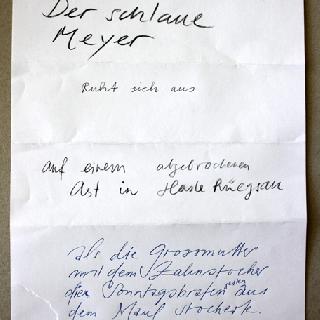 Der schlaue
Meyer
Ruht sich aus
auf einem abgebrochenen
Ast in Hasle Rüegsau
als die Grossmutter
mit dem Zahnstocher
den Sonntagsbraten aus
dem Maul stocherte.